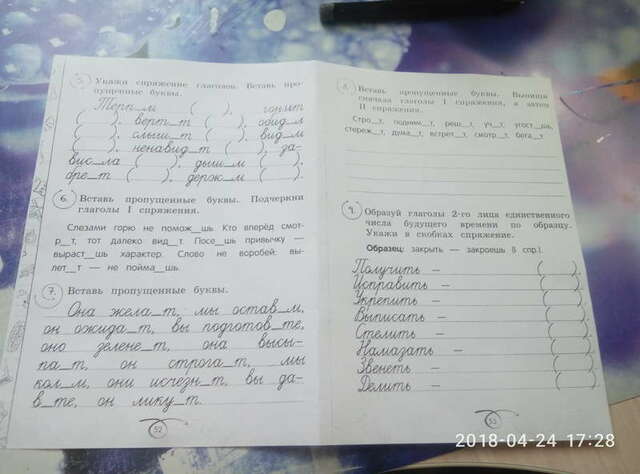 5. Укажи спряжение глаголов. Вставь про-
пущенные буквы.
Терп__м (    ), гон__т
(    ), верт__т (    ), обид__л
(    ), слыш__т (    ), вид__м
(    ), ненавид__т (    ), за-
вис__ла (    ), дыш__м (    ),
бре__т (    ), держ__м (    ).
6. Вставь пропущенные буквы. Подчеркни
глаголы I спряжения.
Слезами горю не помож__шь. Кто вперёд смот-
р__т, тот далеко вид__т. Посе__шь привычку —
выраст__шь характер. Слово не воробей: вы-
лет__т — не пойма__шь.
7. Вставь пропущенные буквы.
Она жела__т, мы остав__м,
он ожида__т, вы подготов__те,
оно зелене__т, она высы-
па__т, он строга__т, мы
кол__м, они исчезн__т, вы да-
в__те, он лику__т.
52
8. Вставь пропущенные буквы. Выпиши
сначала глаголы I спряжения, а затем
II спряжения.
Стро__т, подним__т, реш__т, уч__т, угост__шь,
стереж__т, дума__т, встрет__т, смотр__т, бога__т
9. Образуй глаголы 2-го лица единственного
числа будущего времени по образцу.
Укажи в скобках спряжение.
Образец: закрыть — закроешь (I спр.).
Получить — (    ).
Исправить — (    ).
Укрепить — (    ).
Выписать — (    ).
Стелить — (    ).
Намазать — (    ).
Звенеть — (    ).
Делить — (    ).
53
2018-04-24 17:28